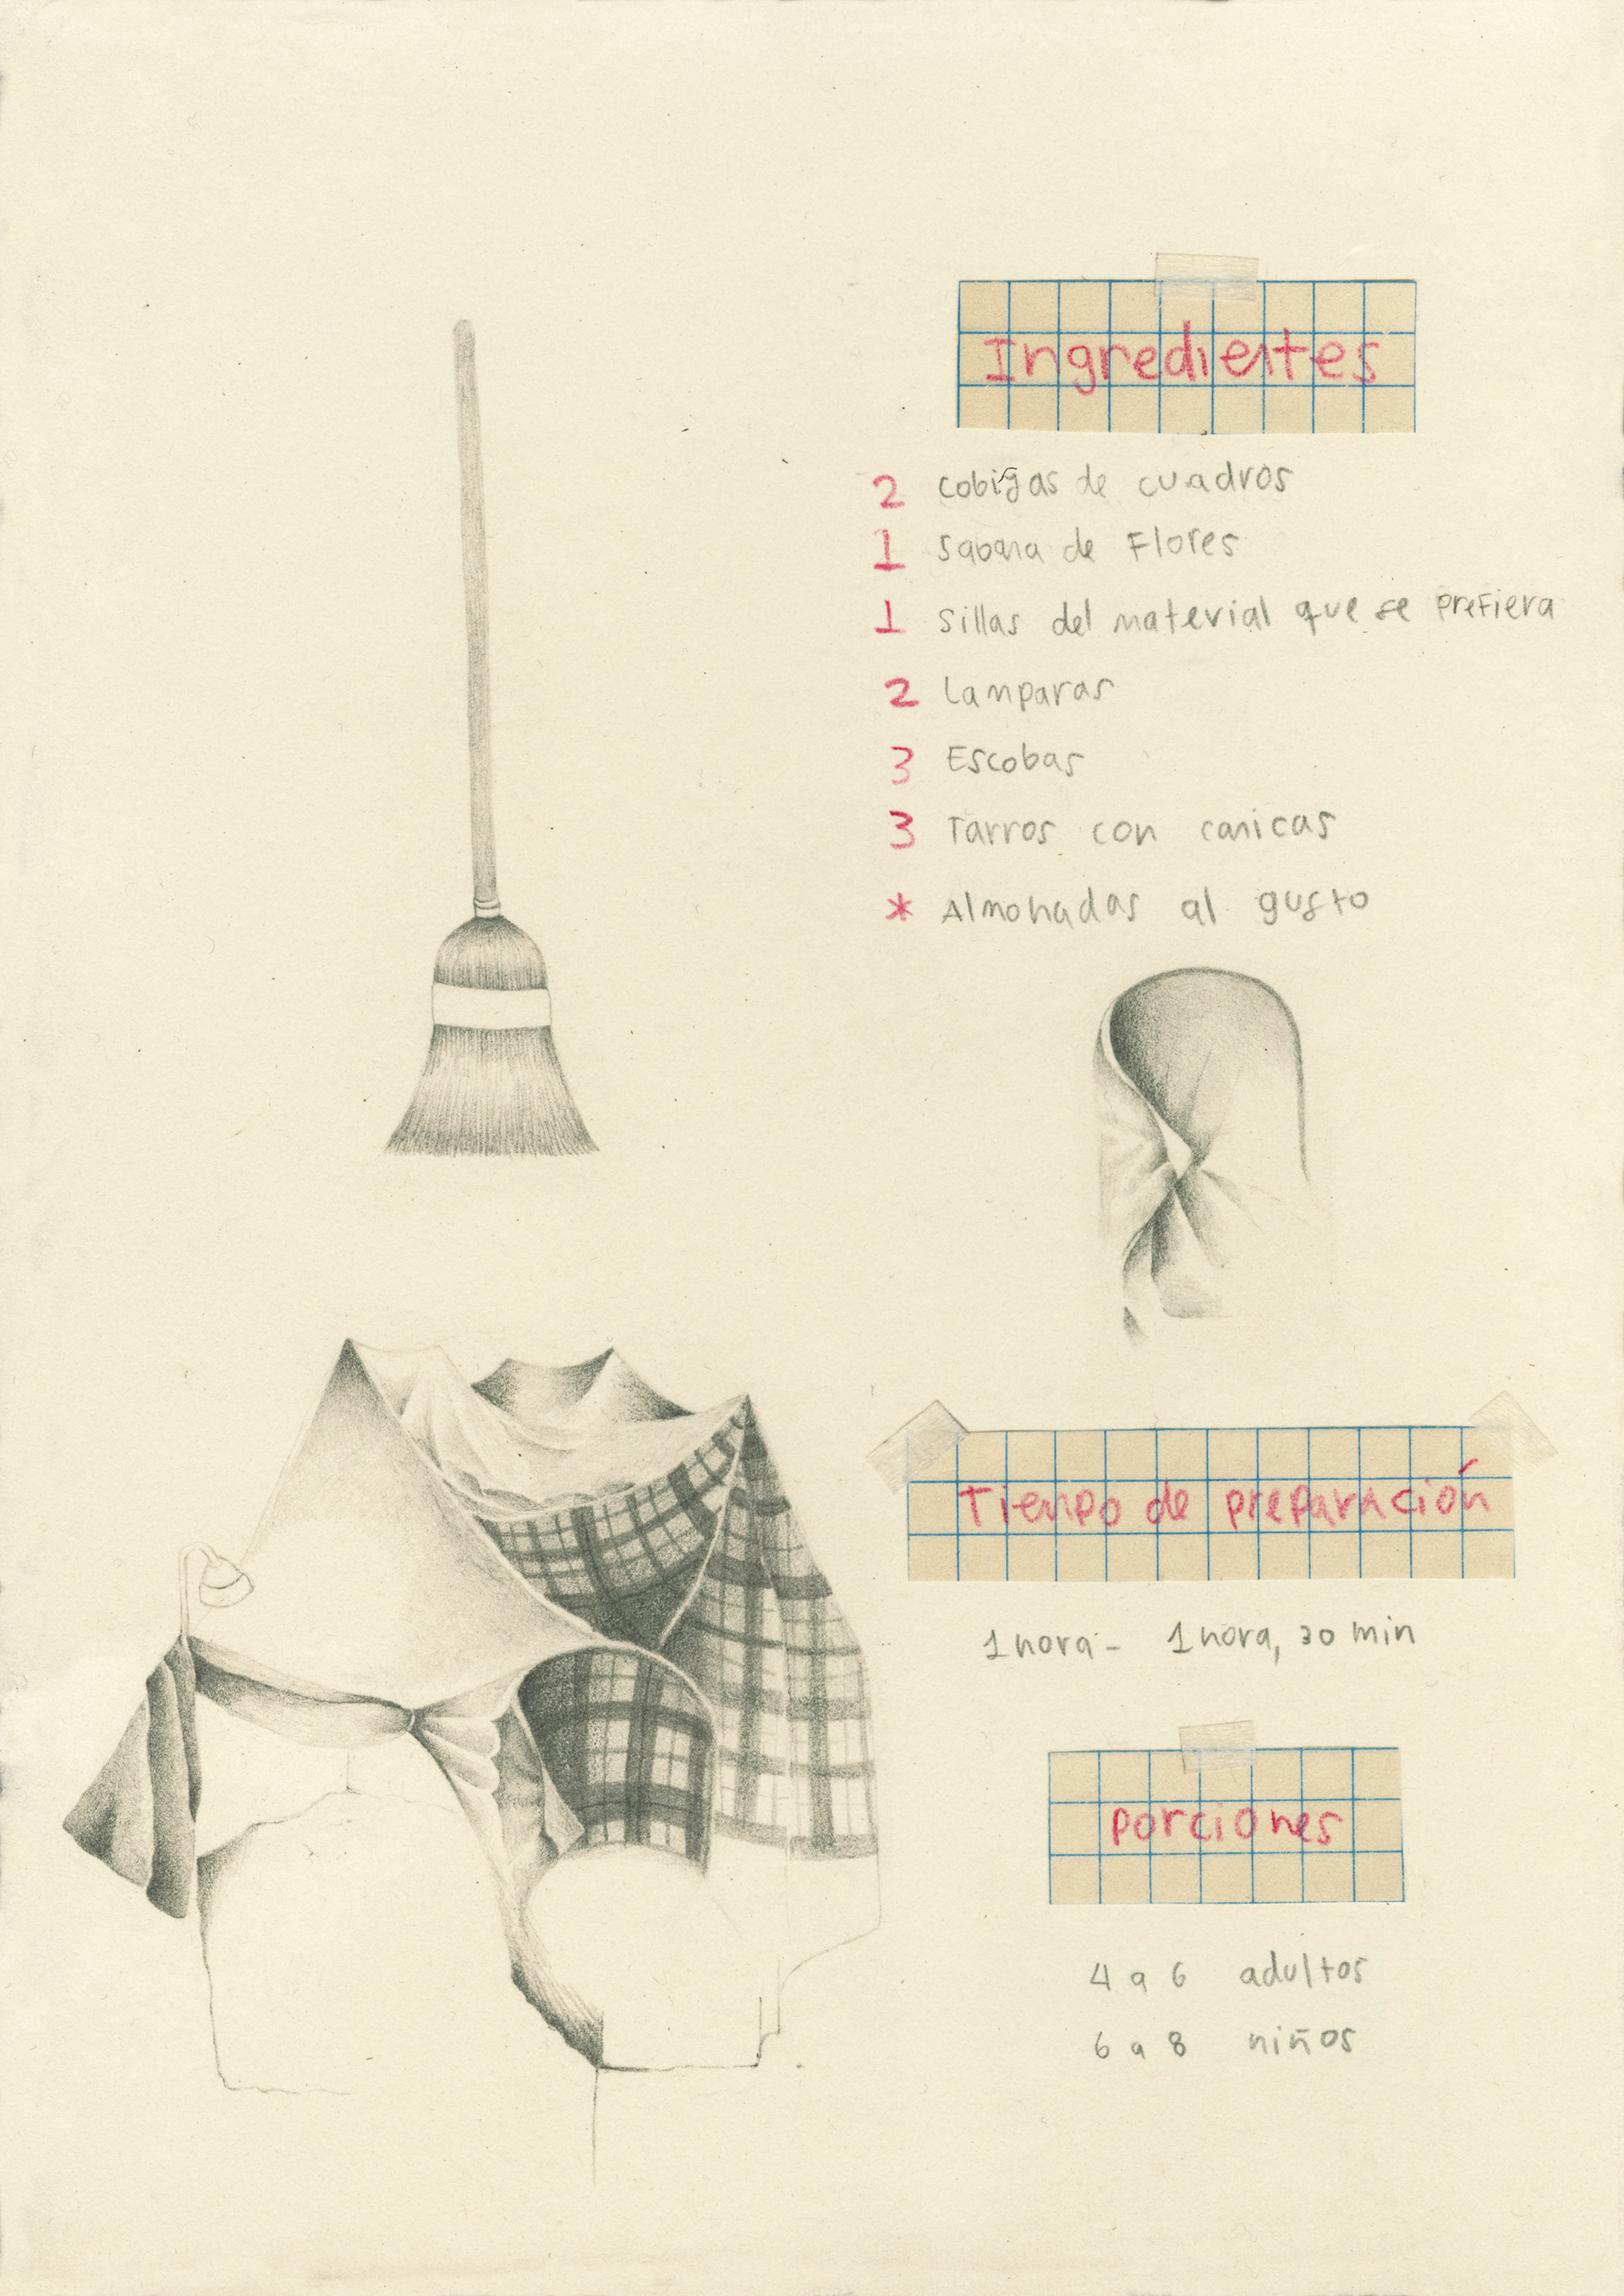 Ingredientes
2 cobijas de cuadros
1 sabana de Flores
1 sillas del material que se prefiera
2 Lamparas
3 Escobas
3 Tarros con canicas
* Almohadas al gusto
Tiempo de preparación
1 hora - 1 hora, 30 min
porciones
4 a 6 adultos
6 a 8 niños